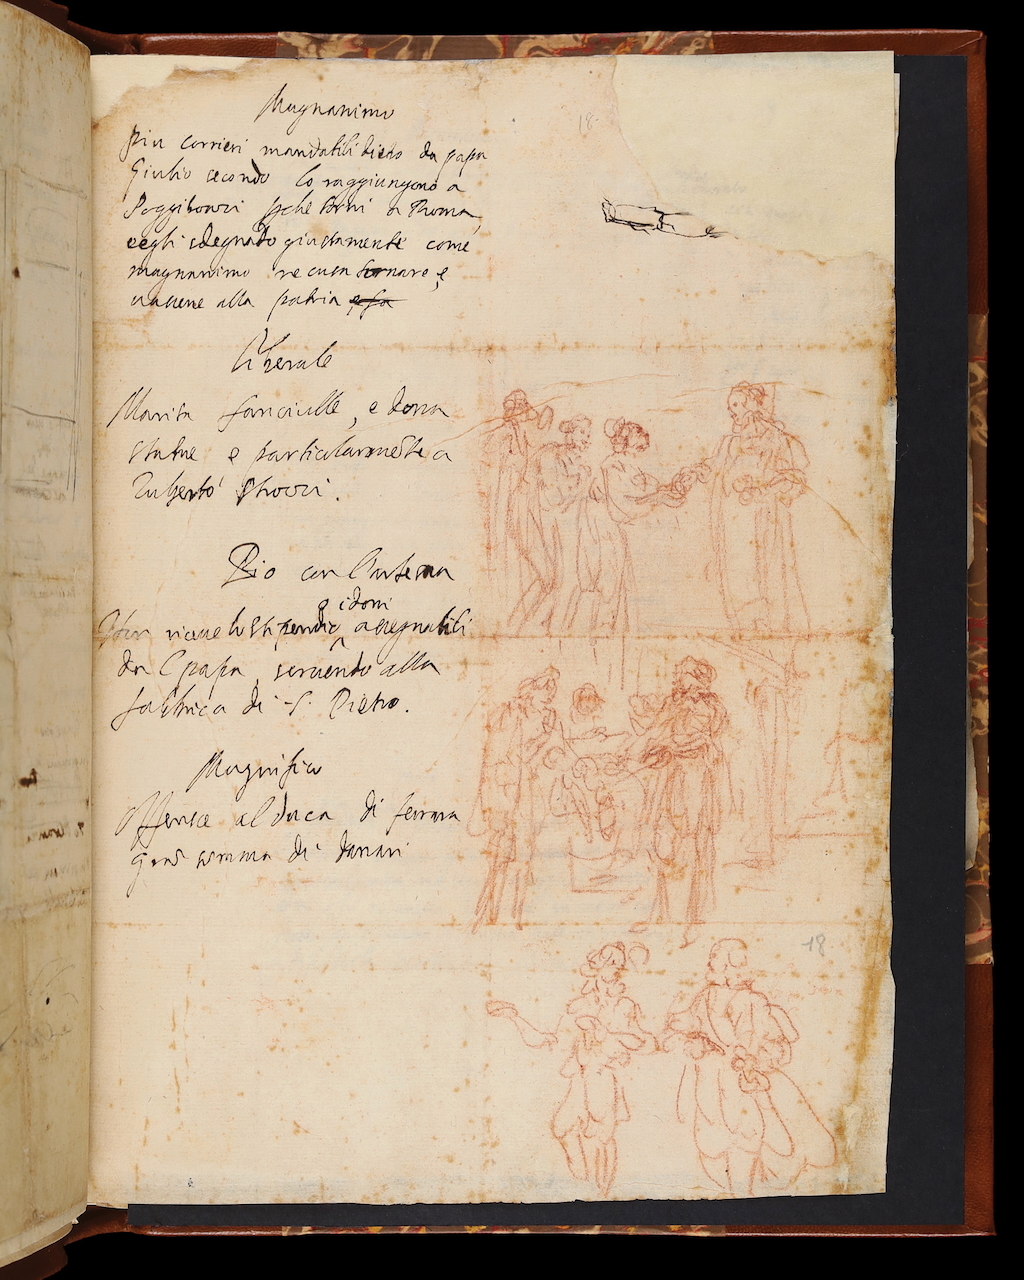 Magnanimo
18
piu corrieri mandatili dieto da papa
Giulio secondo lo raggiungono a
Poggibonzi pche torni a Roma,
eegli sdegnato giustamente come
magnanimo recusa tornare, e
vassene alla patria e fa
Liberale
Marita fanciulle, e dona
statue e particolarmēte a
Ruberto Strozzi.
Pio con l'interna
e idoni
Non riceve lo stipendio assegnatili
da l papa, servēdo alla
fabbrica di S. Pietro.
Magnifico
Offerisce al duca di ferrara
grā somma di danari
18